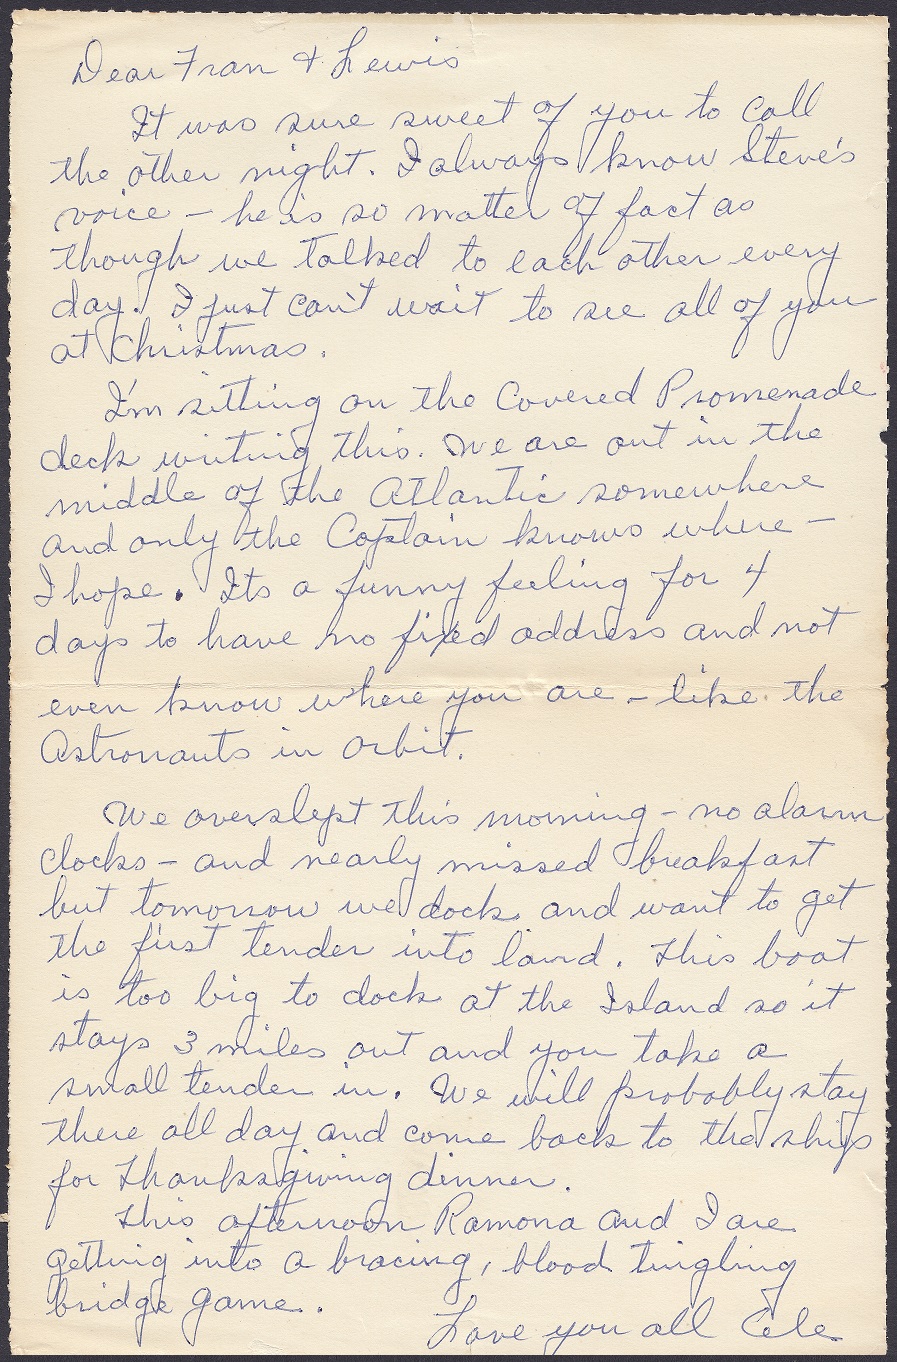 Dear Fran & Lewis
It was sure sweet of you to call
the other night. I always know Steve's
voice - he is so matter of fact as
though we talked to each other every
day. I just can't wait to see all of you
at Christmas.
I'm sitting on the Covered Promenade
deck writing this. We are out in the
middle of the Atlantic somewhere
and only the Captain knows where -
I hope. Its a funny feeling for 4
days to have no fixed address and not
even know where you are - like the
Astronauts in orbit.
We overslept this morning - no alarm
clocks - and nearly missed breakfast
but tomorrow we dock and want to get
the first tender into land. This boat
is too big to dock at the Island so it
stays 3 miles out and you take a
small tender in. We will probably stay
there all day and come back to the ship
for Thanksgiving dinner.
This afternoon Ramona and I are
getting into a bracing, blood tingling
bridge game.
Love you all Cele